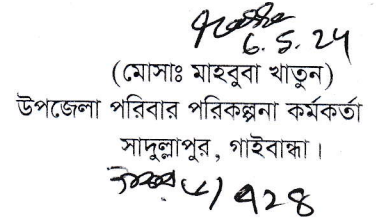 6.5.24
(মোসাঃ মাহবুবা খাতুন)
উপজেলা পরিবার পরিকল্পনা কর্মকর্তা
সাদুল্লাপুর, গাইবান্ধা।